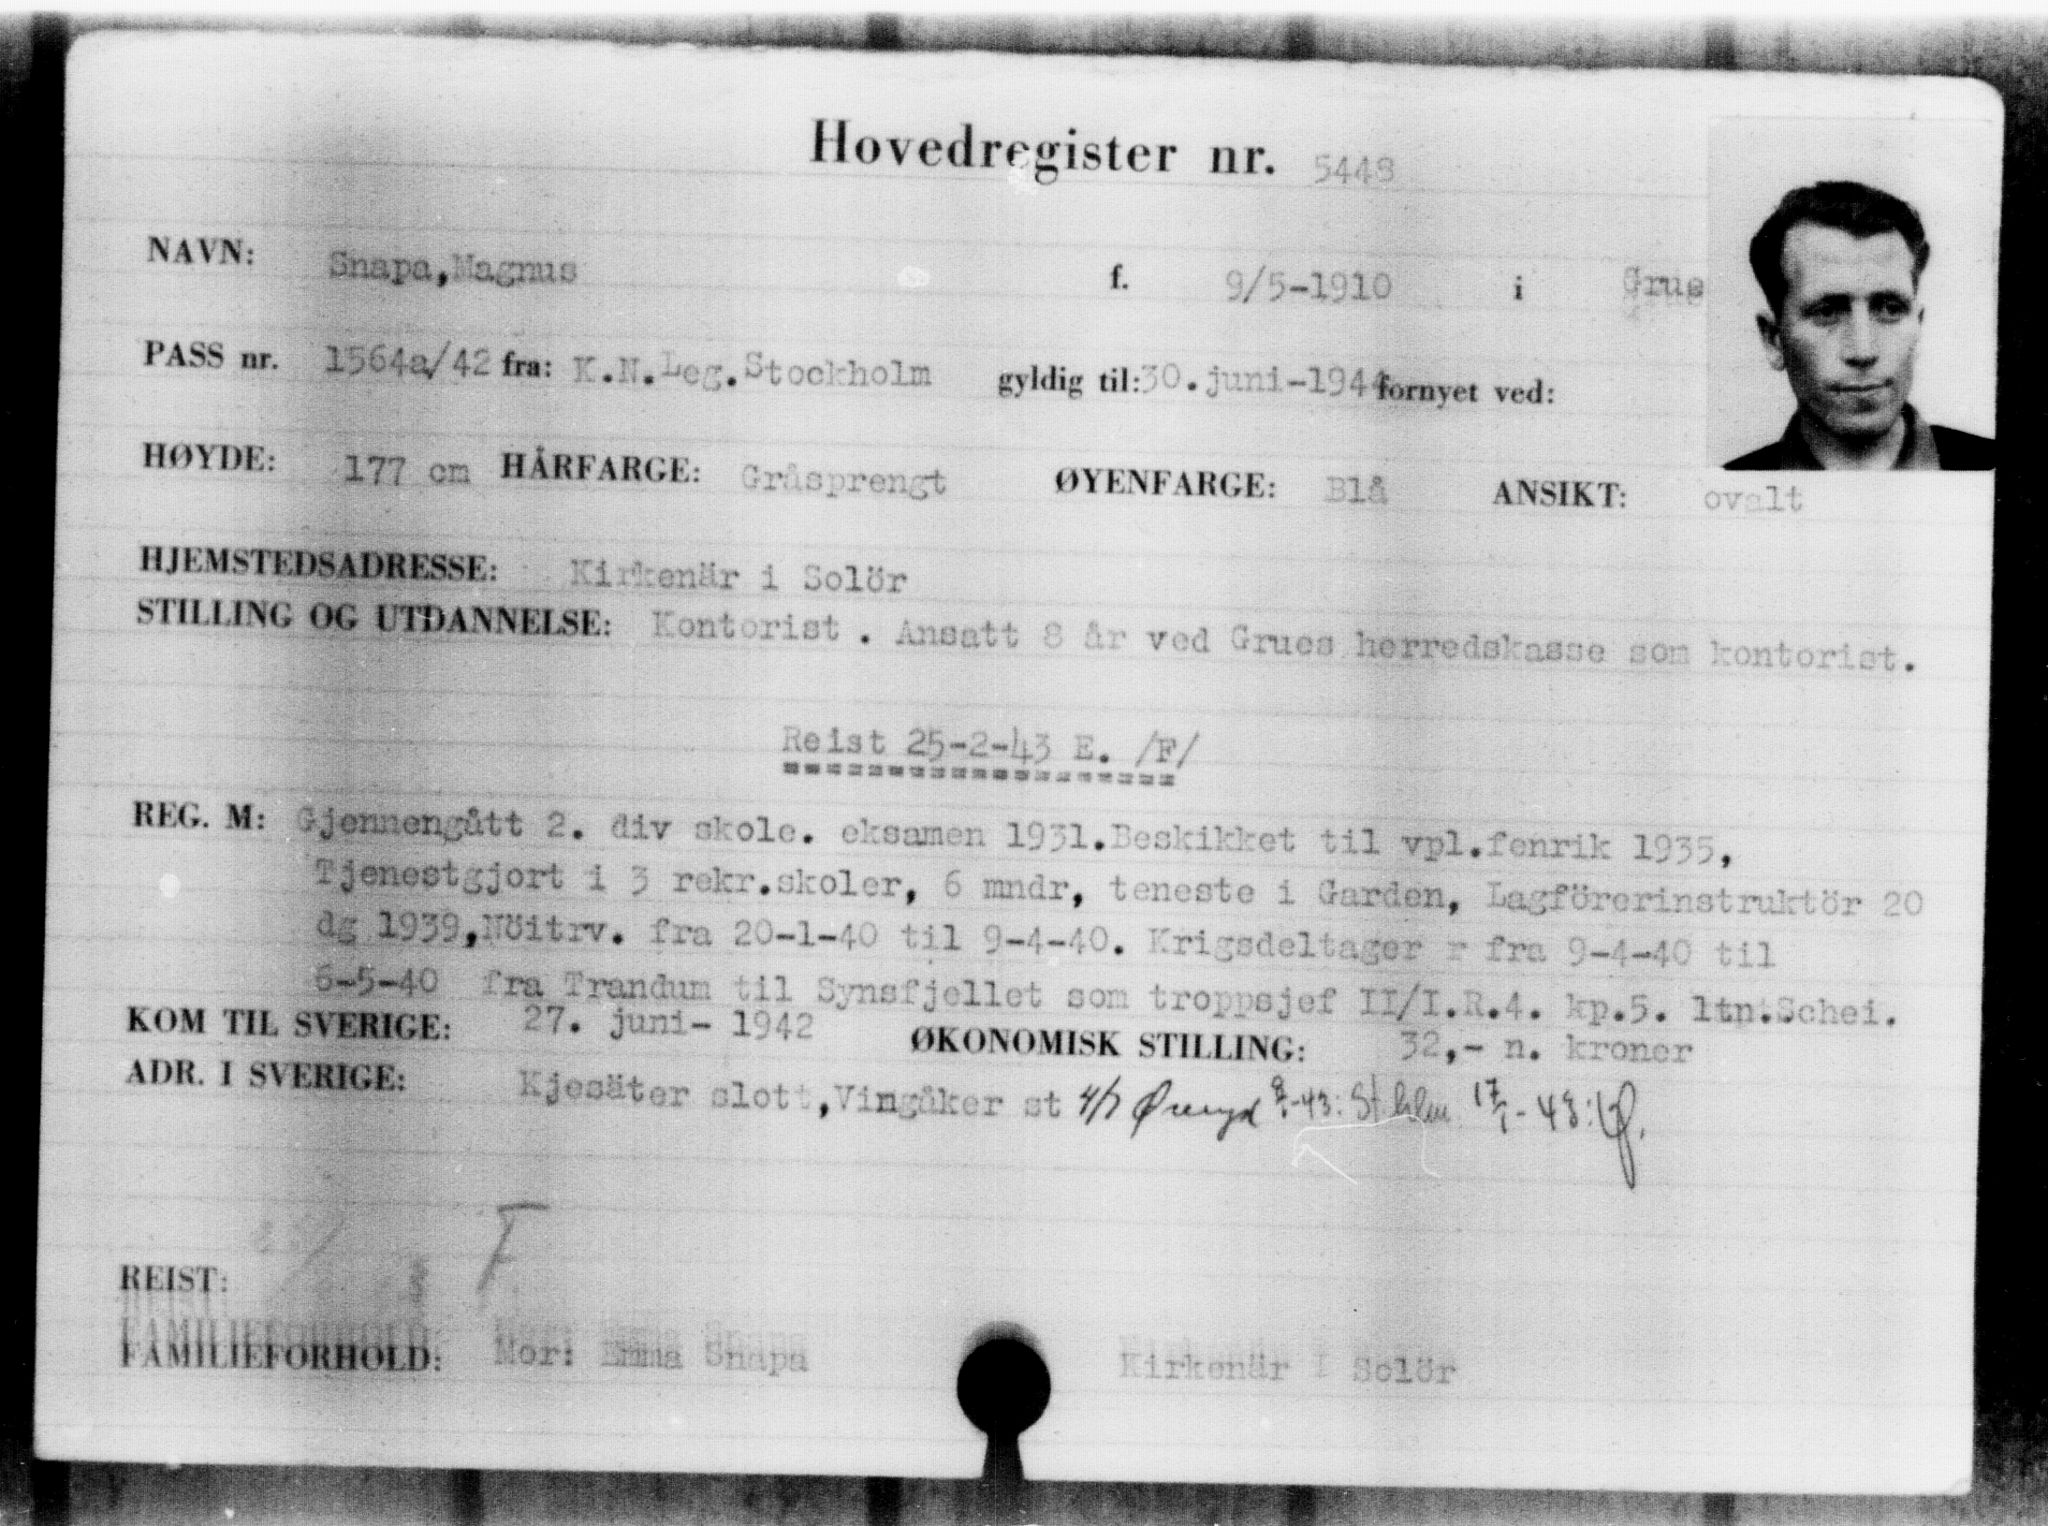 Hovedregister nr. 5448
NAVN: Snapa, Magnus f. 9/5-1910 i Grue
PASS nr. 1564a/42 fra: K.N.Leg.Stockholm gyldig til: 30.juni-1944 fornyet ved:
HØYDE: 177 cm HÅRFARGE: Gråsprengt ØYENFARGE: Blå ANSIKT: ovalt
HJEMSTEDSADRESSE: Kirkenär i Solör
STILLING OG UTDANNELSE: Kontorist . Ansatt 8 år ved Grues herredskasse som kontorist.
Reist 25-2-43 E. /F/
==================
REG. M: Gjennengått 2. div skole. eksamen 1931.Beskikket til vpl.fenrik 1935,
Tjenestgjort i 3 rekr.skoler, 6 mndr, teneste i Garden, Lagförerinstruktör 20
dg 1939,Nöitrv. fra 20-1-40 til 9-4-40. Krigsdeltager r fra 9-4-40 til
6-5-40 fra Trandum til Synsfjellet som troppsjef II/I.R.4. kp.5. ltn.Schei.
KOM TIL SVERIGE: 27. juni- 1942 ØKONOMISK STILLING: 32,- n. kroner
ADR. I SVERIGE: Kjesäter slott,Vingåker st 4/7 8/1-43: Sthlm 17/1-43: Ø.
F
REIST:
FAMILIEFORHOLD: Mor: Emma Snapa Kirkenär I Solör